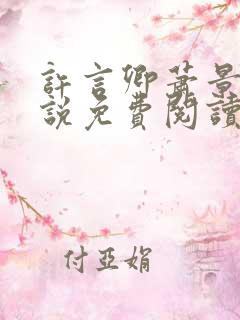 許言卿蕭景
說免費閱讀
付亞娟